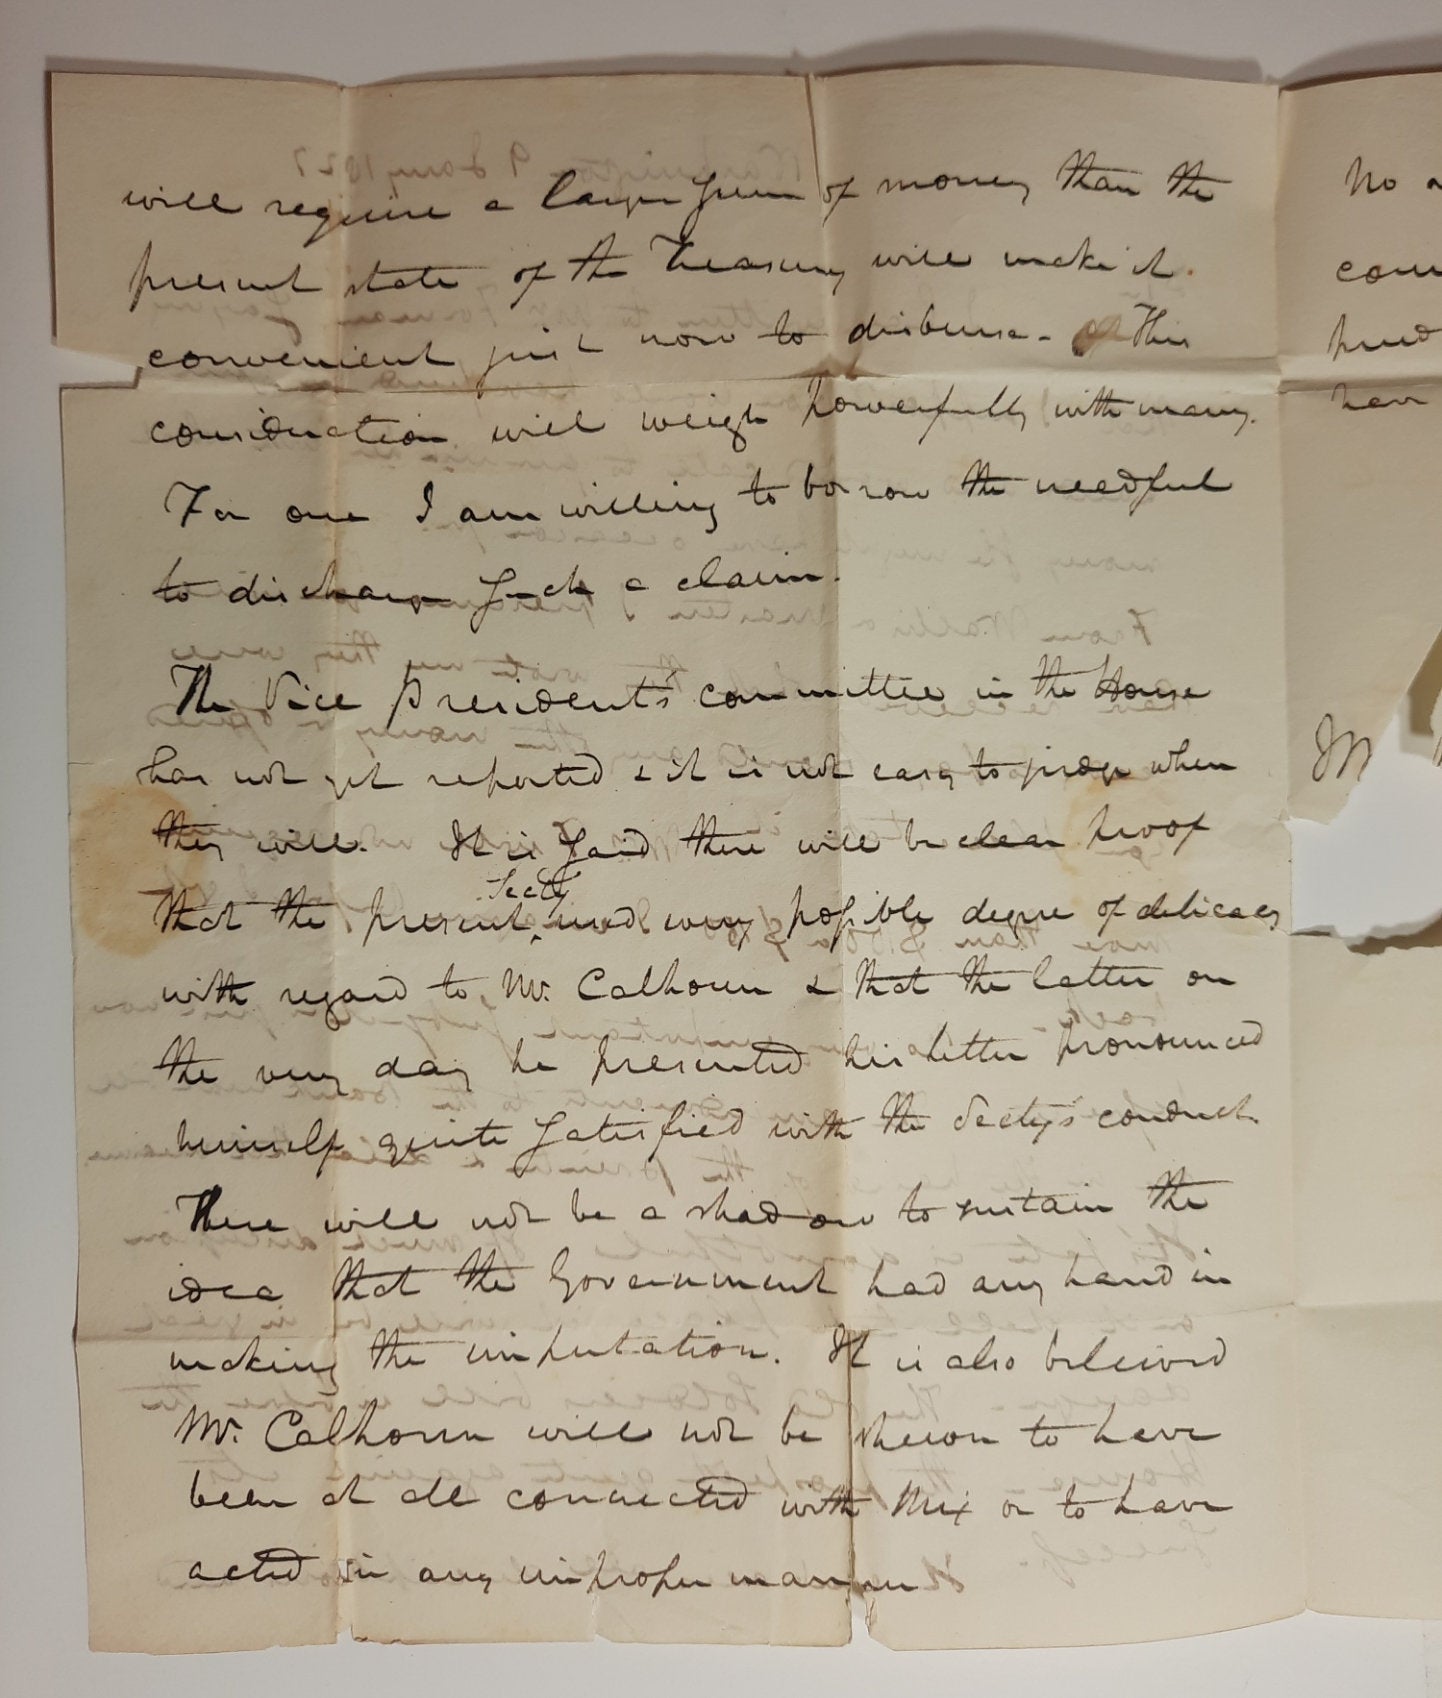 will require a larger sum of money than the
present state of the Treasury will make it
convenient just now to disburse - This
consideration will weigh powerfully with many.
For one I am willing to borrow the needful
to discharge such a claim.
The Vice President's committee in the House
has not yet reported & it is not easy to judge when
they will. It is said there will be clear proof
Secty
that the present, used every possible degree of delicacy
with regard to Mr. Calhoun & that the latter on
the very day he presented his letter pronounced
himself quite satisfied with the Secty's conduct.
There will not be a shadow to sustain the
idea that the Government had any hand in
making the imputation. It is also believed
Mr. Calhoun will not be shewn to have
been at all connected with Mix or to have
acted in any improper manner
No
have